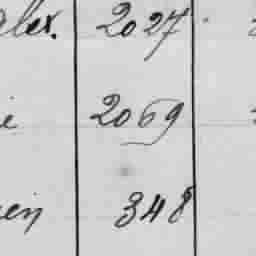 alex. 2027
2069
348